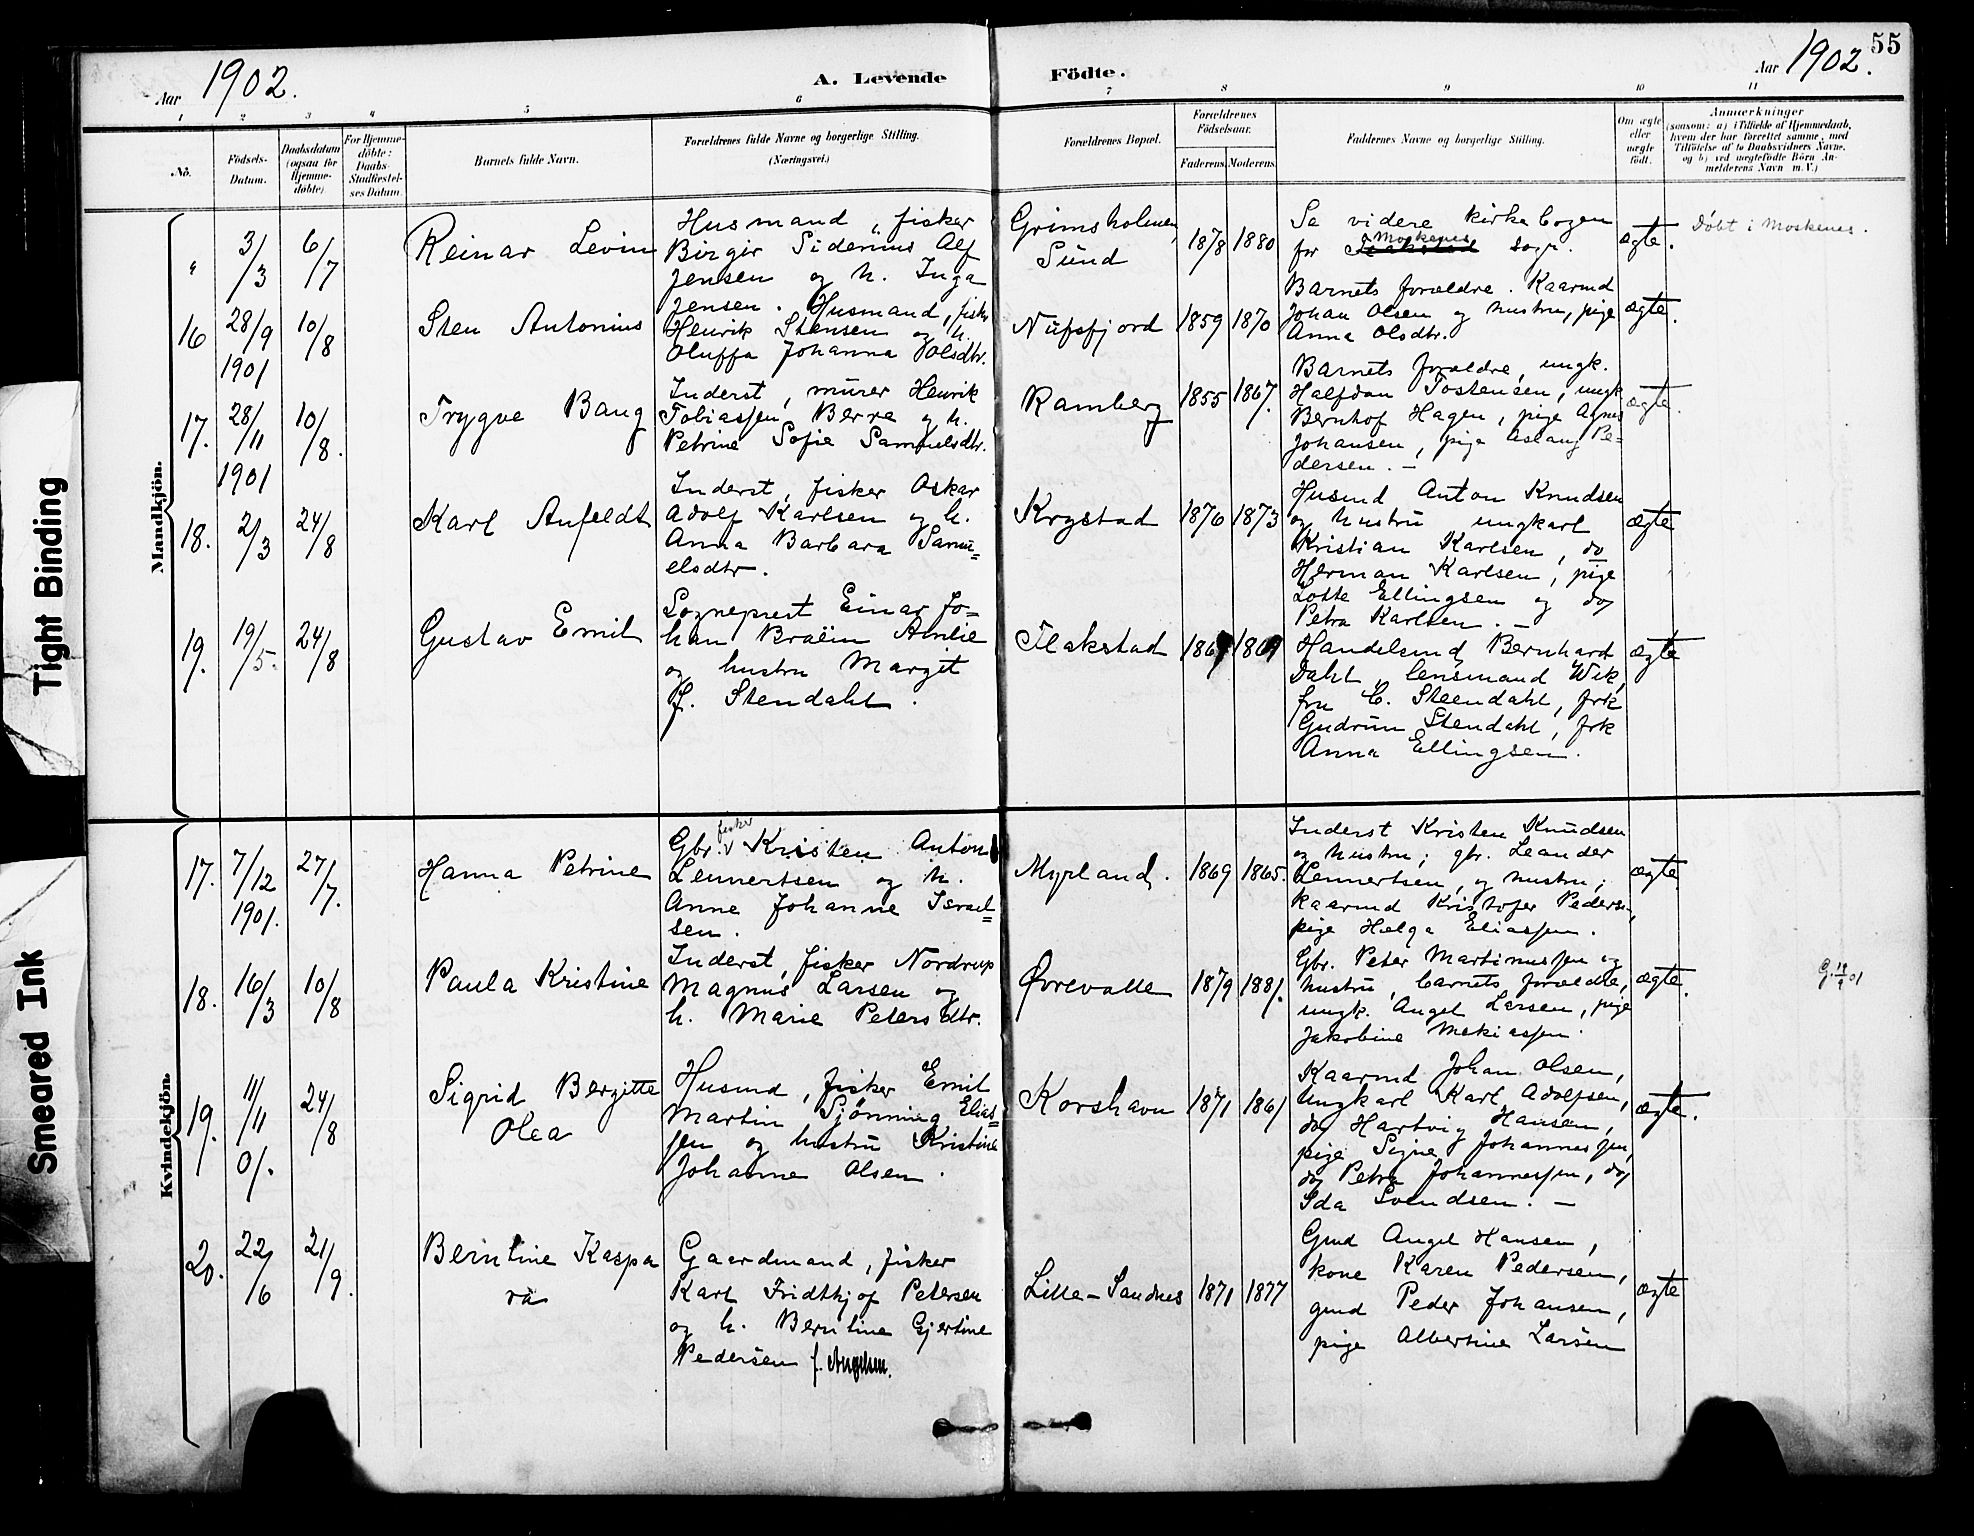 55
Aar 1902.
A. Levende Födte.
Aar 1902.
1 2 3 4 5 6 7 8 9 10 11
Nô.
Födsels-
Datum.
Daabsdatum
(ogsaa for
Hjemme-
döbte)
For Hjemme-
döbte:
Daabs-
Stadfæstel-
ses Datum.
Barnets fulde Navn.
Forældrenes fulde Navne og borgerlige Stilling.
(Næringsvei.)
Forældrenes Bopæl.
Forældrenes
Födselsaar.
Faderens. Moderens.
Faddernes Navne og borgerlige Stilling.
Om ægte
eller
uægte
født.
Anmærkninger
(saasom: a) i Tilfælde af Hjemmedaab,
hvem der har forrettet samme, med
Tilföielse af to Daabsvidners Navne,
og b) ved uægtefödte Börn An-
melderens Navn m. V.)
Mandkjön.
"
3/3
6/7
Reinar Levin
Husmand, fisker
Birger Sidenius Alf
Jensen og h. Inga
Jensen.
Grimsholmen
Sund
1878 1880
Se videre kirkebogen
for Moskenes sogn.
ægte.
Döbt i Moskenes.
16
28/9
1901
10/8
Sten Antonius
Husmand, fisk
Henrik Stensen og h.
Oluffa Johanna Olsdtr.
Nufsfjord
1859 1870
Barnets forældre. Kaarmd
Johan Olsen og hustru, pige
Anna Olsdtr.
ægte.
17.
28/11
1901
10/8.
Trygve Bang
Inderst, murer Henrik
Tobiassen Berre og h.
Petrine Sofie Samuelsdtr.
Ramberg
1855 1867.
Barnets forældre, ungk.
Halfdan Tostensen, ungk
Bernhof Hagen, pige Agnes
Johansen, pige Aslaug Pe-
dersen. —
ægte.
18.
2/3
24/8
Karl Anfeldt
Inderst, fisker Oskar
Adolf Karlsen og h.
Anna Barbara Samu=
elsdtr.
Krystad
1876 1873
Husmd Anton Knudsen
og hustru ungkarl
Kristian Karlsen, do
Herman Karlsen, pige
Lotte Ellingsen og do
Petra Karlsen. —
ægte
19.
19/5.
24/8
Gustav Emil
Sogneprest Einar Jo=
han Braëin Amlie
og hustru Margit
f. Stendahl.
Flakstad
1867 1869
Handelsmd Bernhard
Dahl, lensmand Wik,
fru C. Steendahl, frk
Gudrun Stendahl, frk
Anna Ellingsen.
ægte
Kvindekjön.
17.
7/12
1901.
27/7.
Hanna Petrine
Gbr. fisker Kristen Anton
Lennertsen og h.
Anne Johanne Israel=
sen.
Myrland.
1869 1865.
Inderst Kristen Knudsen
og hustru; gbr. Leander
Lennertsen, og hustru;
kaarmd Kristofer Pedersen,
pige Helga Eliassen.
ægte
18.
16/3
10/8
Paula Kristine
Inderst, fisker Nordrup
Magnus Larsen og
h. Marie Petersdtr.
Ørevalle
1879 1881.
Gbr. Peter Martinussen og
hustru, barnets forældre,
ungk. Angel Larsen, pige
Jakobine Mekiassen.
ægte.
19.
11/11
01.
24/8
Sigrid Bergitte
Olea
Husmd, fisker Emil
Martin Sjönning Elias=
sen og hustru Kristine
Johanne Olsen.
Korshavn
1871 1861
Kaarmd Johan Olsen,
ungkarl Karl Adolfsen,
do Hartvig Hansen,
pige Signe Johannessen,
do Petra Johannessen, do
Ida Svendsen. —
ægte.
20.
22/6
21/9.
Berntine Kaspa
ra
Gaardmand, fisker
Karl Fridthjof Petersen
og h. Berntine Gjertine
Pedersen f. Angelsen.
Lille-Sandnes
1871 1877
Gmd Angel Hansen,
kone Karen Pedersen,
gmd Peder Johansen,
pige Albertine Larsen
ægte
Tight Binding
Smeared Ink